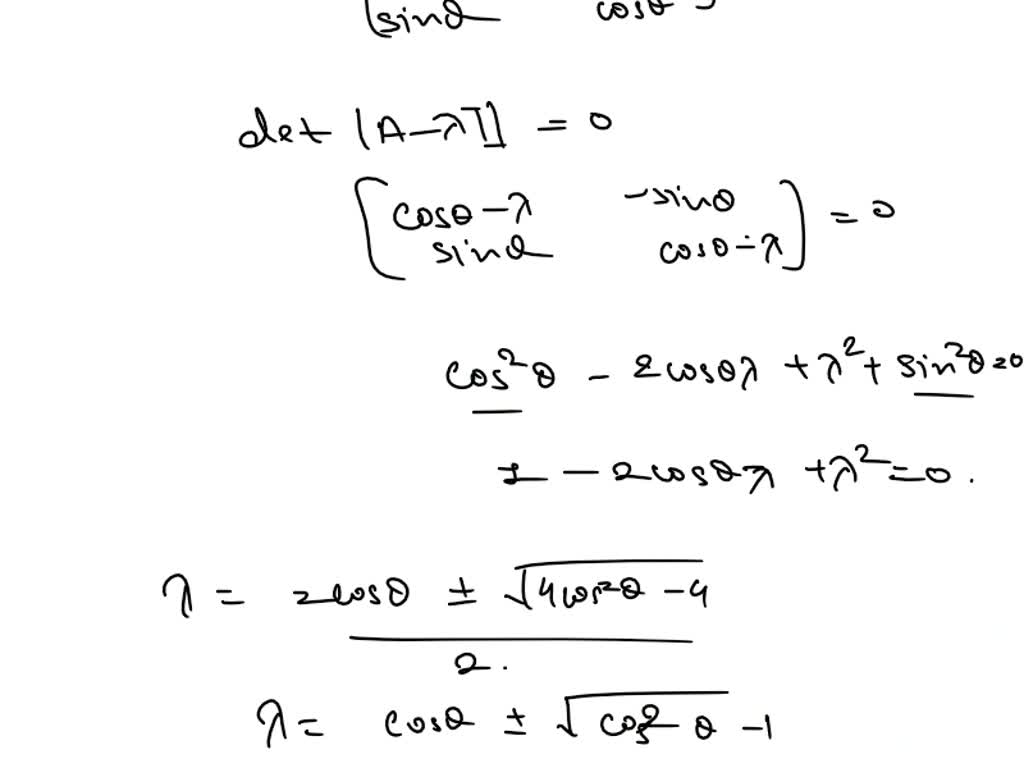 sinθ cosθ
det [A-λI] = 0
[cosθ-λ -sinθ
sinθ cosθ-λ] = 0
cos²θ - 2cosθλ + λ² + sin²θ=0
1 - 2cosθλ + λ² = 0.
λ = 2cosθ ± √4cos²θ - 4
2.
λ = cosθ ± √cos²θ - 1